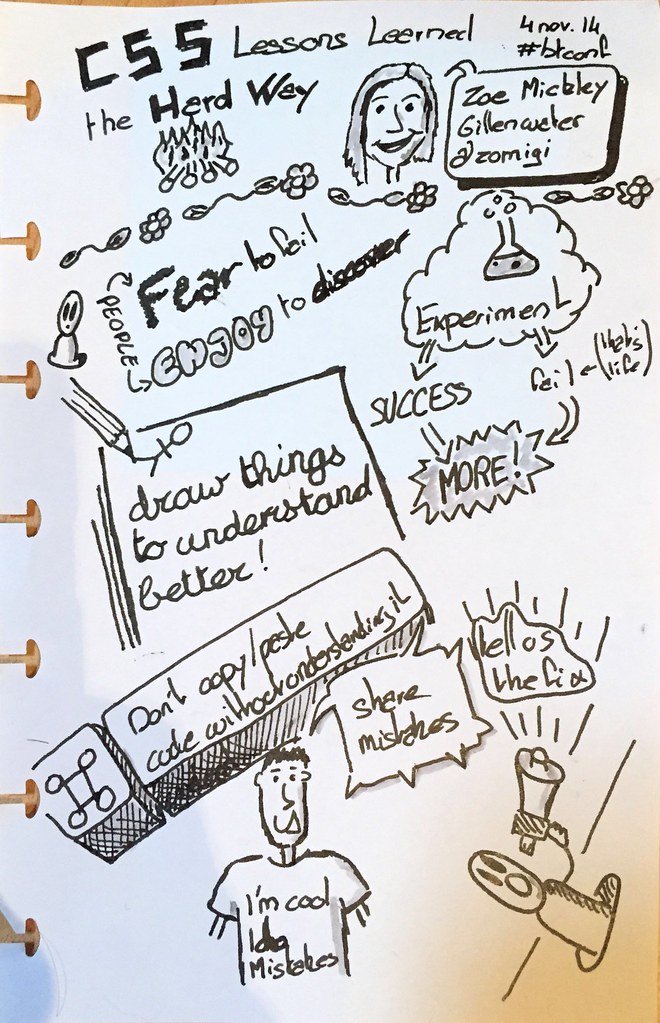 CSS Lessons Learned
the Hard Way
4 nov. 14
#btconf
Zoe Mickley
Gillenwater
@zomigi
PEOPLE
Fear to fail
ENJOY to discover
Experiment
SUCCESS
fail
(that's
life)
MORE!
draw things
to understand
better!
Don't copy/paste
code without understanding it
share
mistakes
tell us
the fix
I'm cool
I do
Mistakes